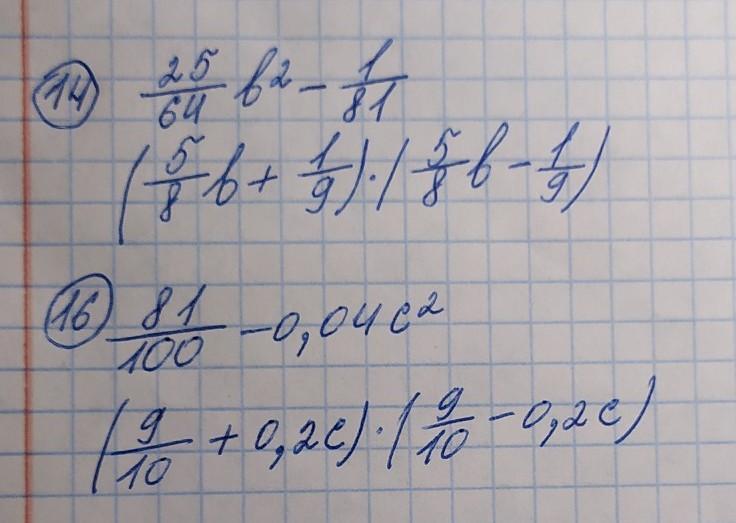 14 25/64 b² - 1/81
(5/8 b + 1/9) · (5/8 b - 1/9)
16 81/100 - 0,04c²
(9/10 + 0,2c) · (9/10 - 0,2c)